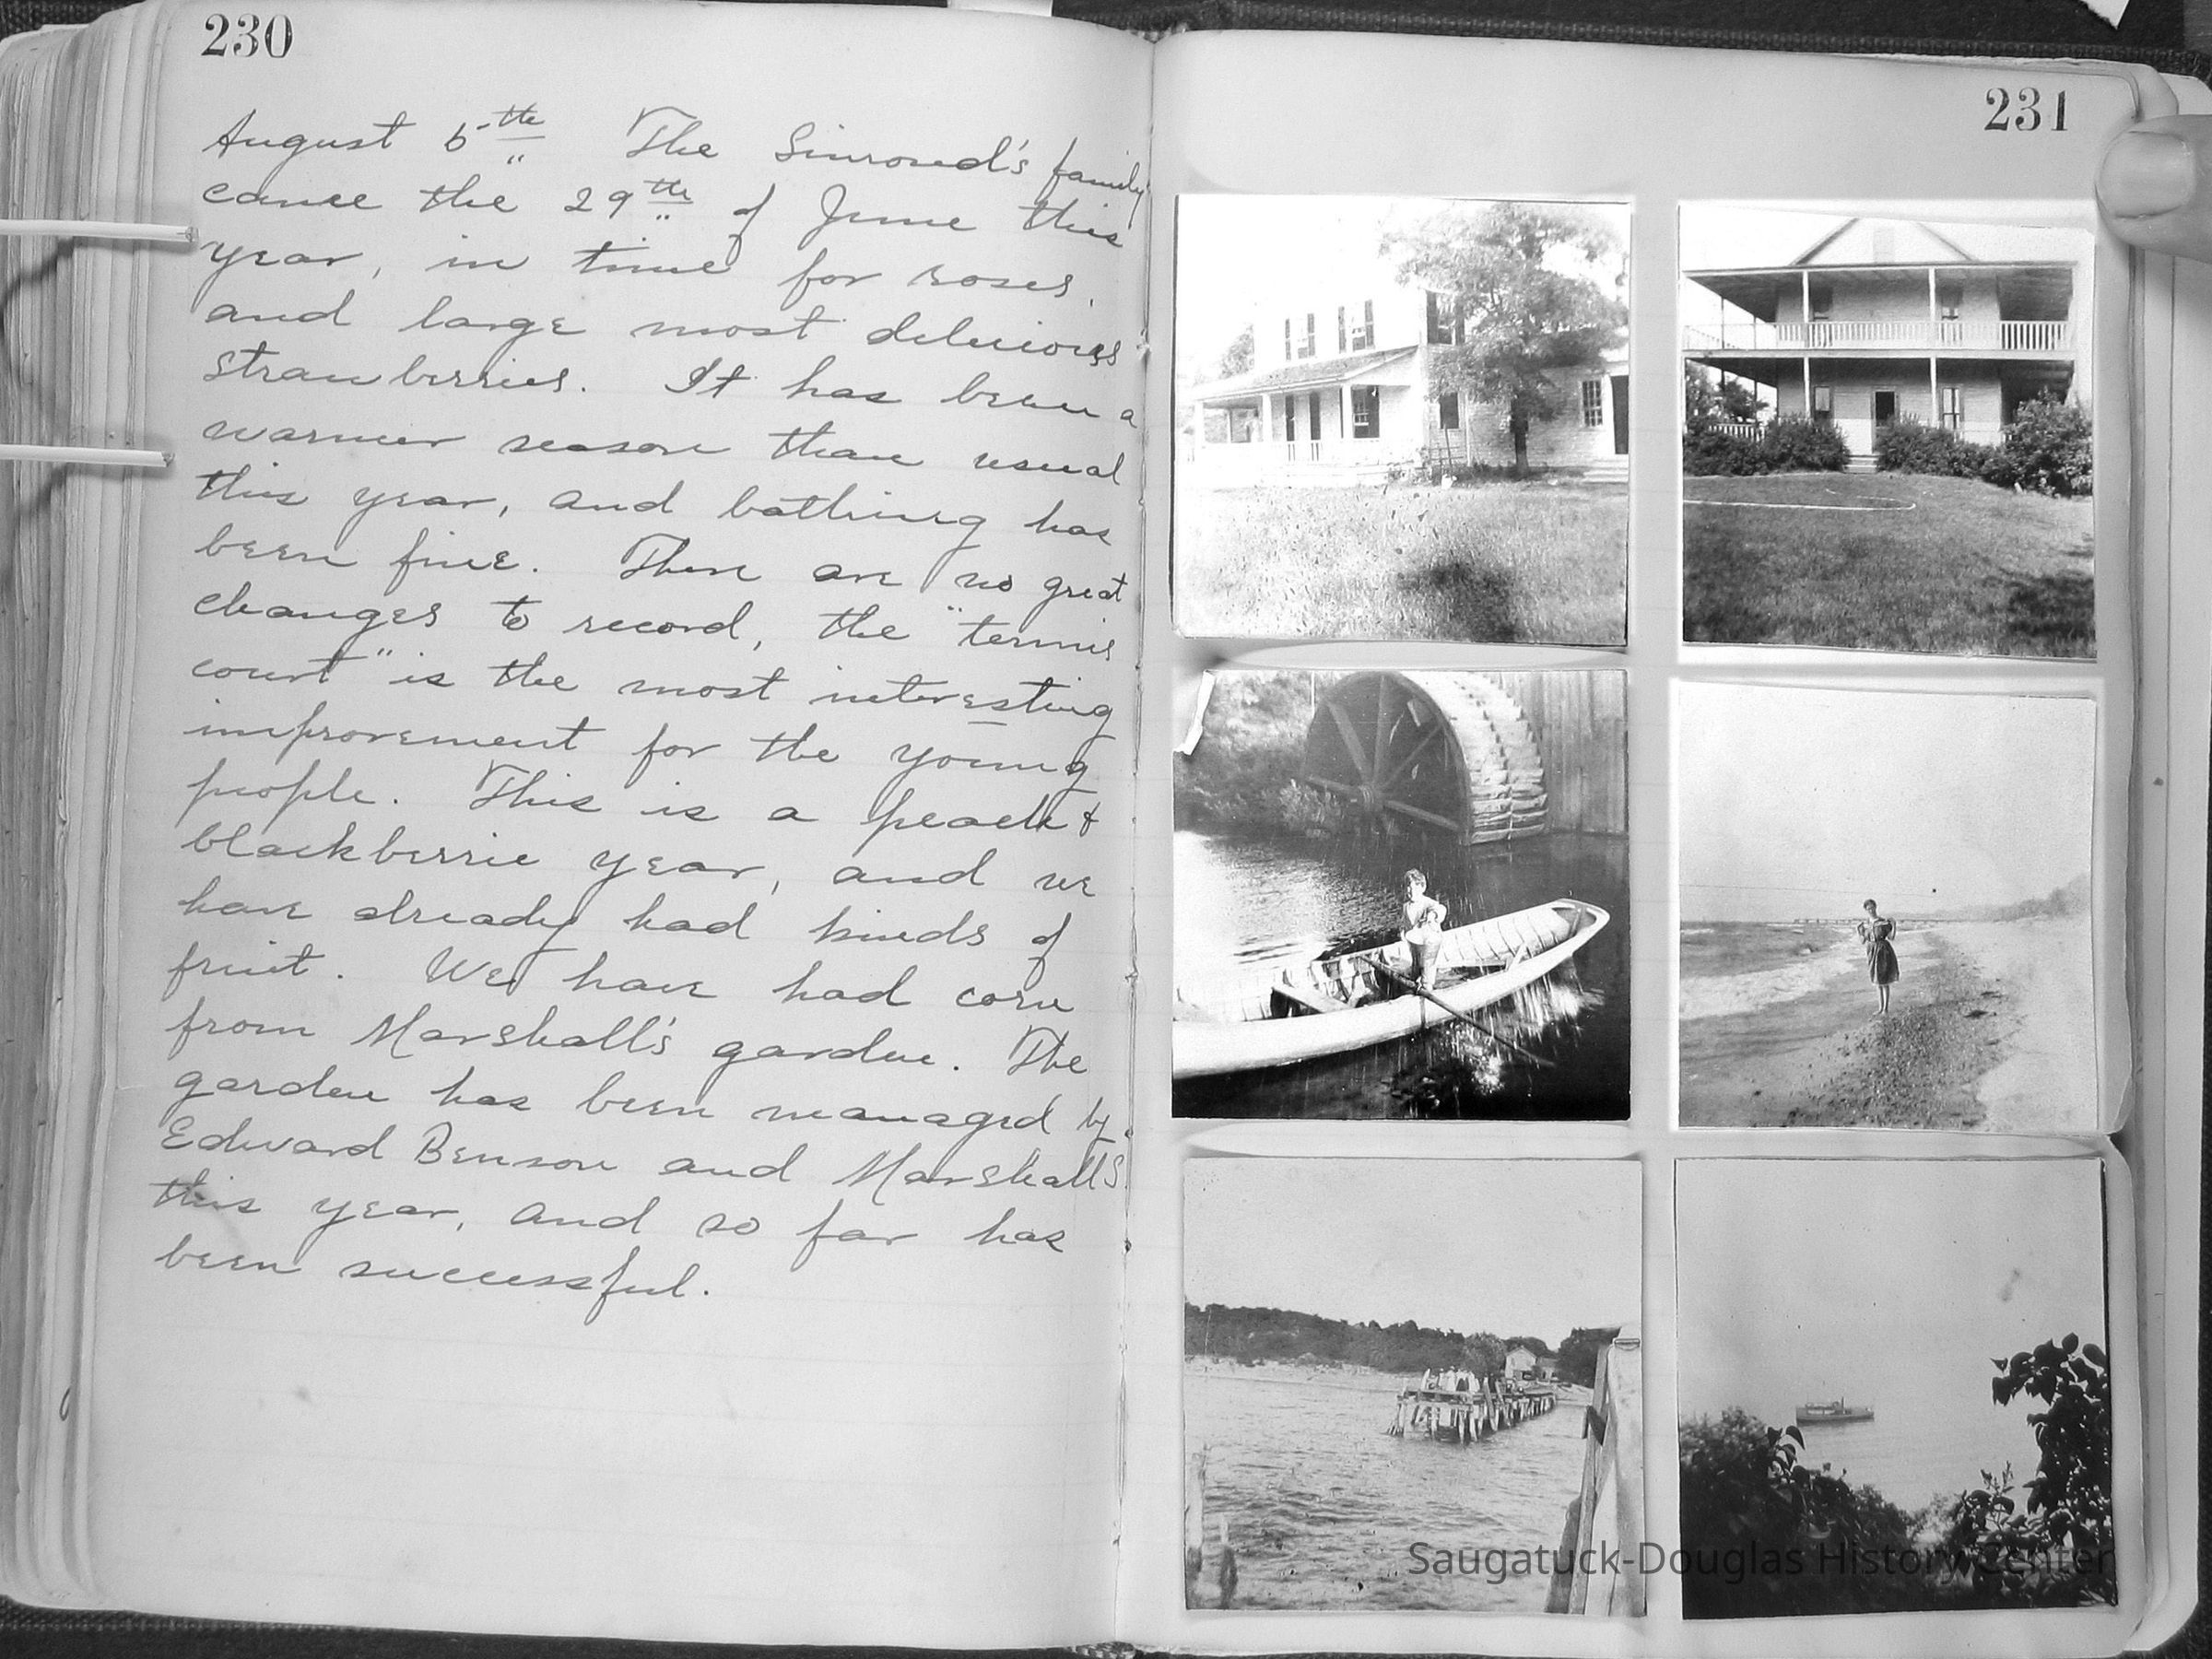 230
August 5th The Simond's family
came the 29th of June this
year, in time for roses,
and large most delicious
strawberries. It has been a
warmer season than usual
this year, and bathing has
been fine. There are no great
changes to record, the "tennis
court" is the most interesting
improvement for the young
people. This is a peach &
blackberrie year, and we
have already had kinds of
fruit. We have had corn
from Marshall's garden. The
garden has been managed by
Edward Benson and Marshall S.
this year, and so far has
been successful.
231
Saugatuck-Douglas History Center